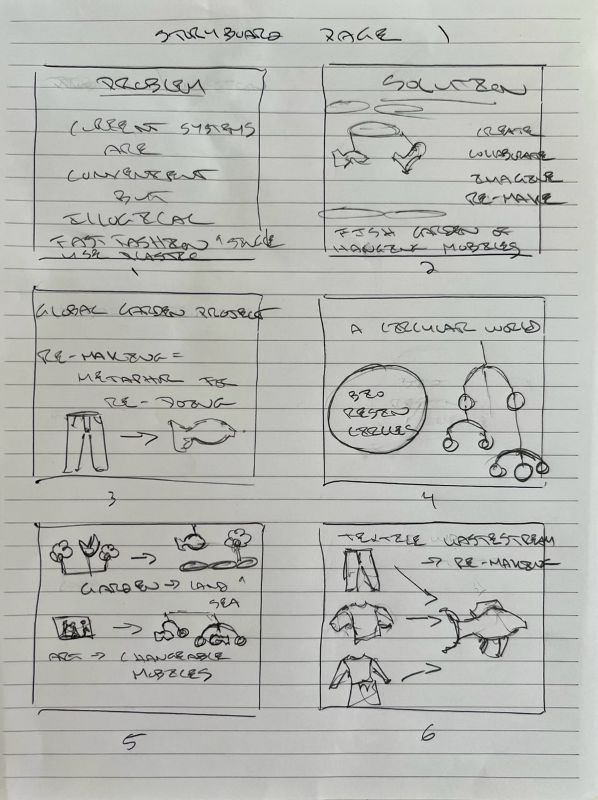 STORYBOARD PAGE 1
PROBLEM
CURRENT SYSTEMS
ARE
CONVENIENT
BUT
ILLOGICAL
FAST FASHION & SINGLE
USE PLASTIC
1
SOLUTION
CREATE
COLLABORATE
IMAGINE
RE-MAKE
FISH GARDEN OF
HANGING MOBILES
2
GLOBAL GARDEN PROJECT
RE-MAKING =
METAPHOR TO
RE-DOING
3
A CIRCULAR WORLD
BIO
RESIN
CIRCLES
4
GARDEN → LAND ^
SEA
ART → CHANGEABLE
MOBILES
5
TEXTILE WASTESTREAM
→ RE-MAKING
6